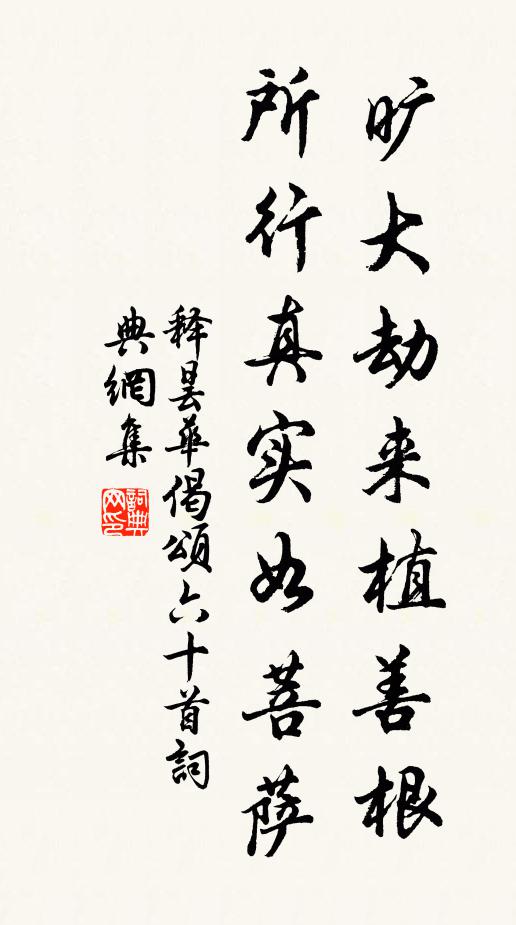 旷大劫来植善根
所行真实如菩萨
释昙华偈颂六十首詞
典網集
詞典
网印